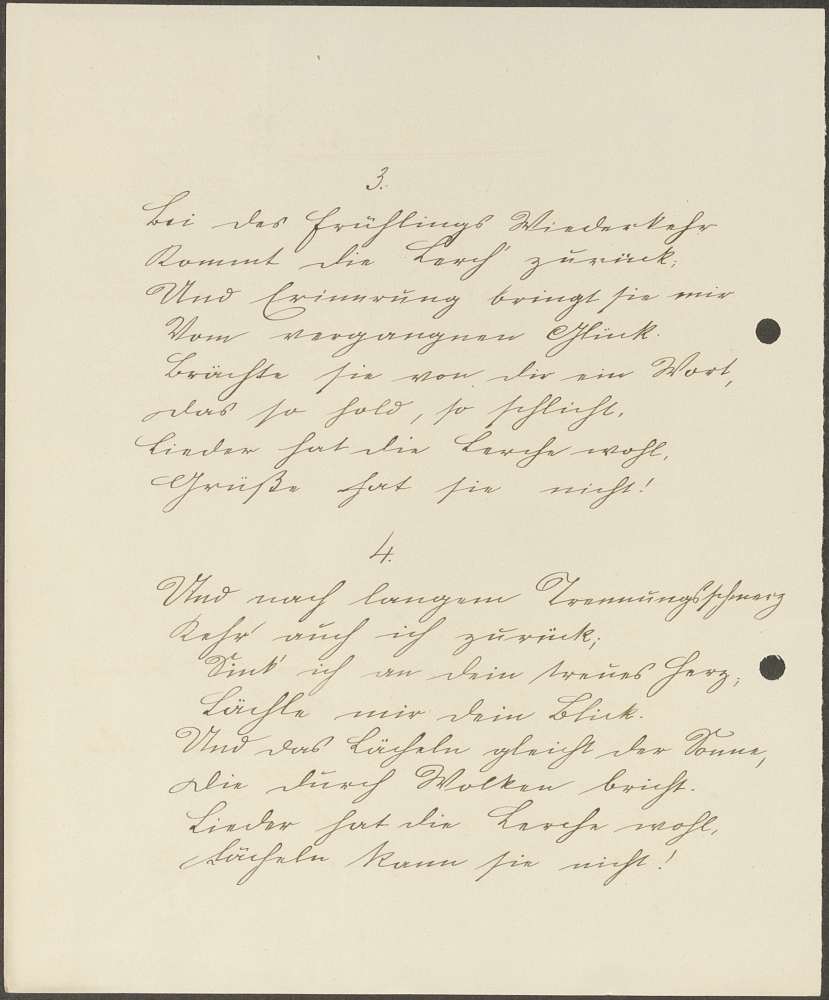 3.
Bei des Frühlings Wiederkehr
Kommt die Lerch' zurück;
Und Erinnrung bringt sie mir
Vom vergangnen Glück.
Brächte sie von dir ein Wort,
Das so hold, so schlicht.
Lieder hat die Lerche wohl,
Grüße hat sie nicht!
4.
Und nach langem Trennungsschmerz
Kehr' auch ich zurück;
Sink' ich an dein treues Herz,
Lächle mir dein Blick.
Und das Lächeln gleicht der Sonne,
Die durch Wolken bricht.
Lieder hat die Lerche wohl,
Lächeln kann sie nicht!